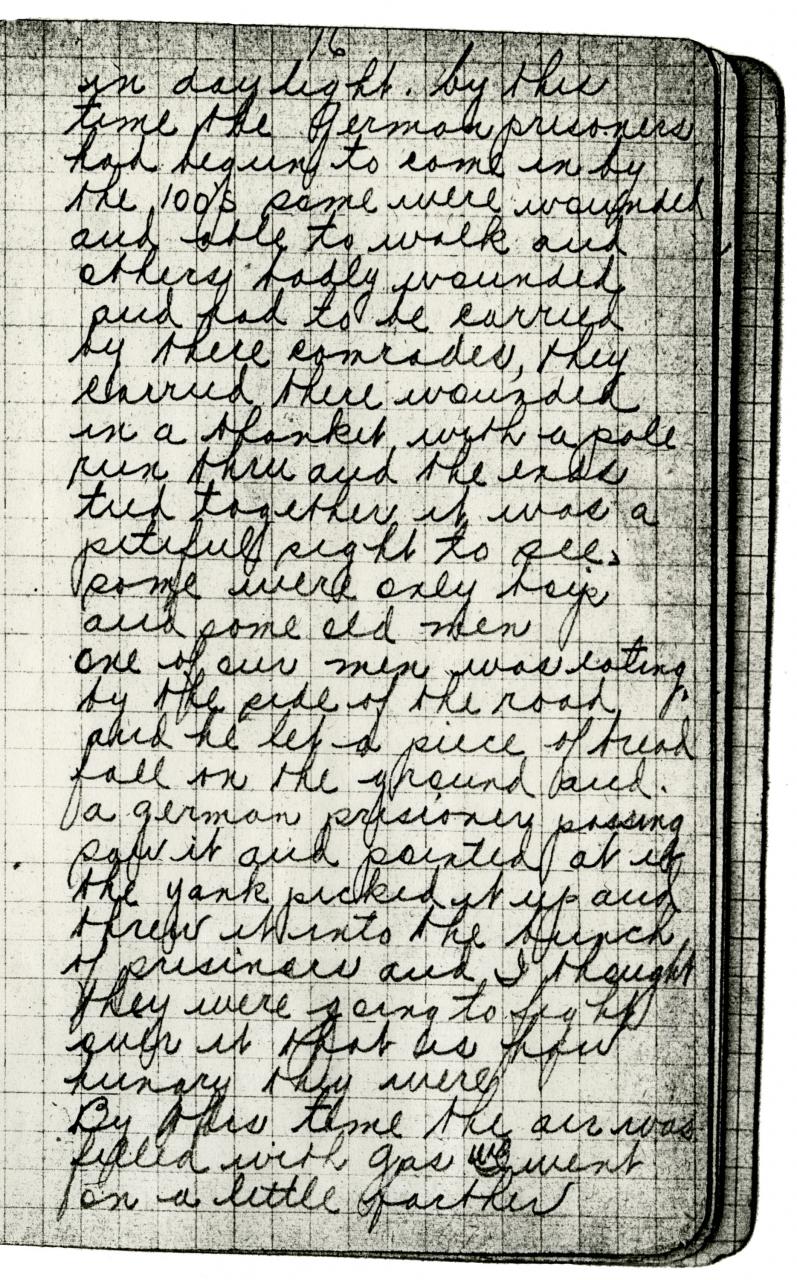 16
in day light. by this
time the German prisoners
had begun to come in by
the 100's some were wounded
and able to walk and
others badly wounded
and had to be carried
by there comrades, they
carried there wounded
in a blanket with a pole
run thru and the ends
tied together it was a
pitiful sight to see,
some were only boys
and some old men
one of our men was eating
by the side of the road
and he let a piece of bread
fall on the ground and.
a german prisioner passing
saw it and pointed at it
the yank picked it up and
threw it into the bunch
of prisiners and I thought
they were going to fight
over it that is how
hungry they were
By this time the air was
filled with gas we went
on a little farther